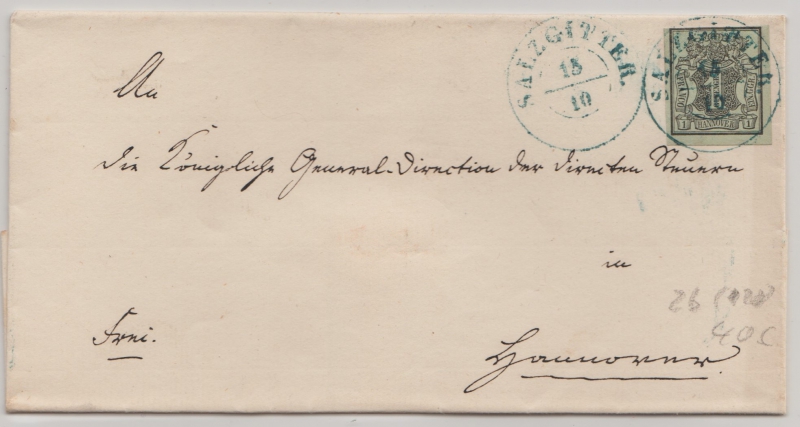 SALZGITTER.
15
10
SALZGITTER.
15
10
1 HANNOVER 1
An
die Königliche General-Direction der directen Steuern
in
Frei.
Hannover.